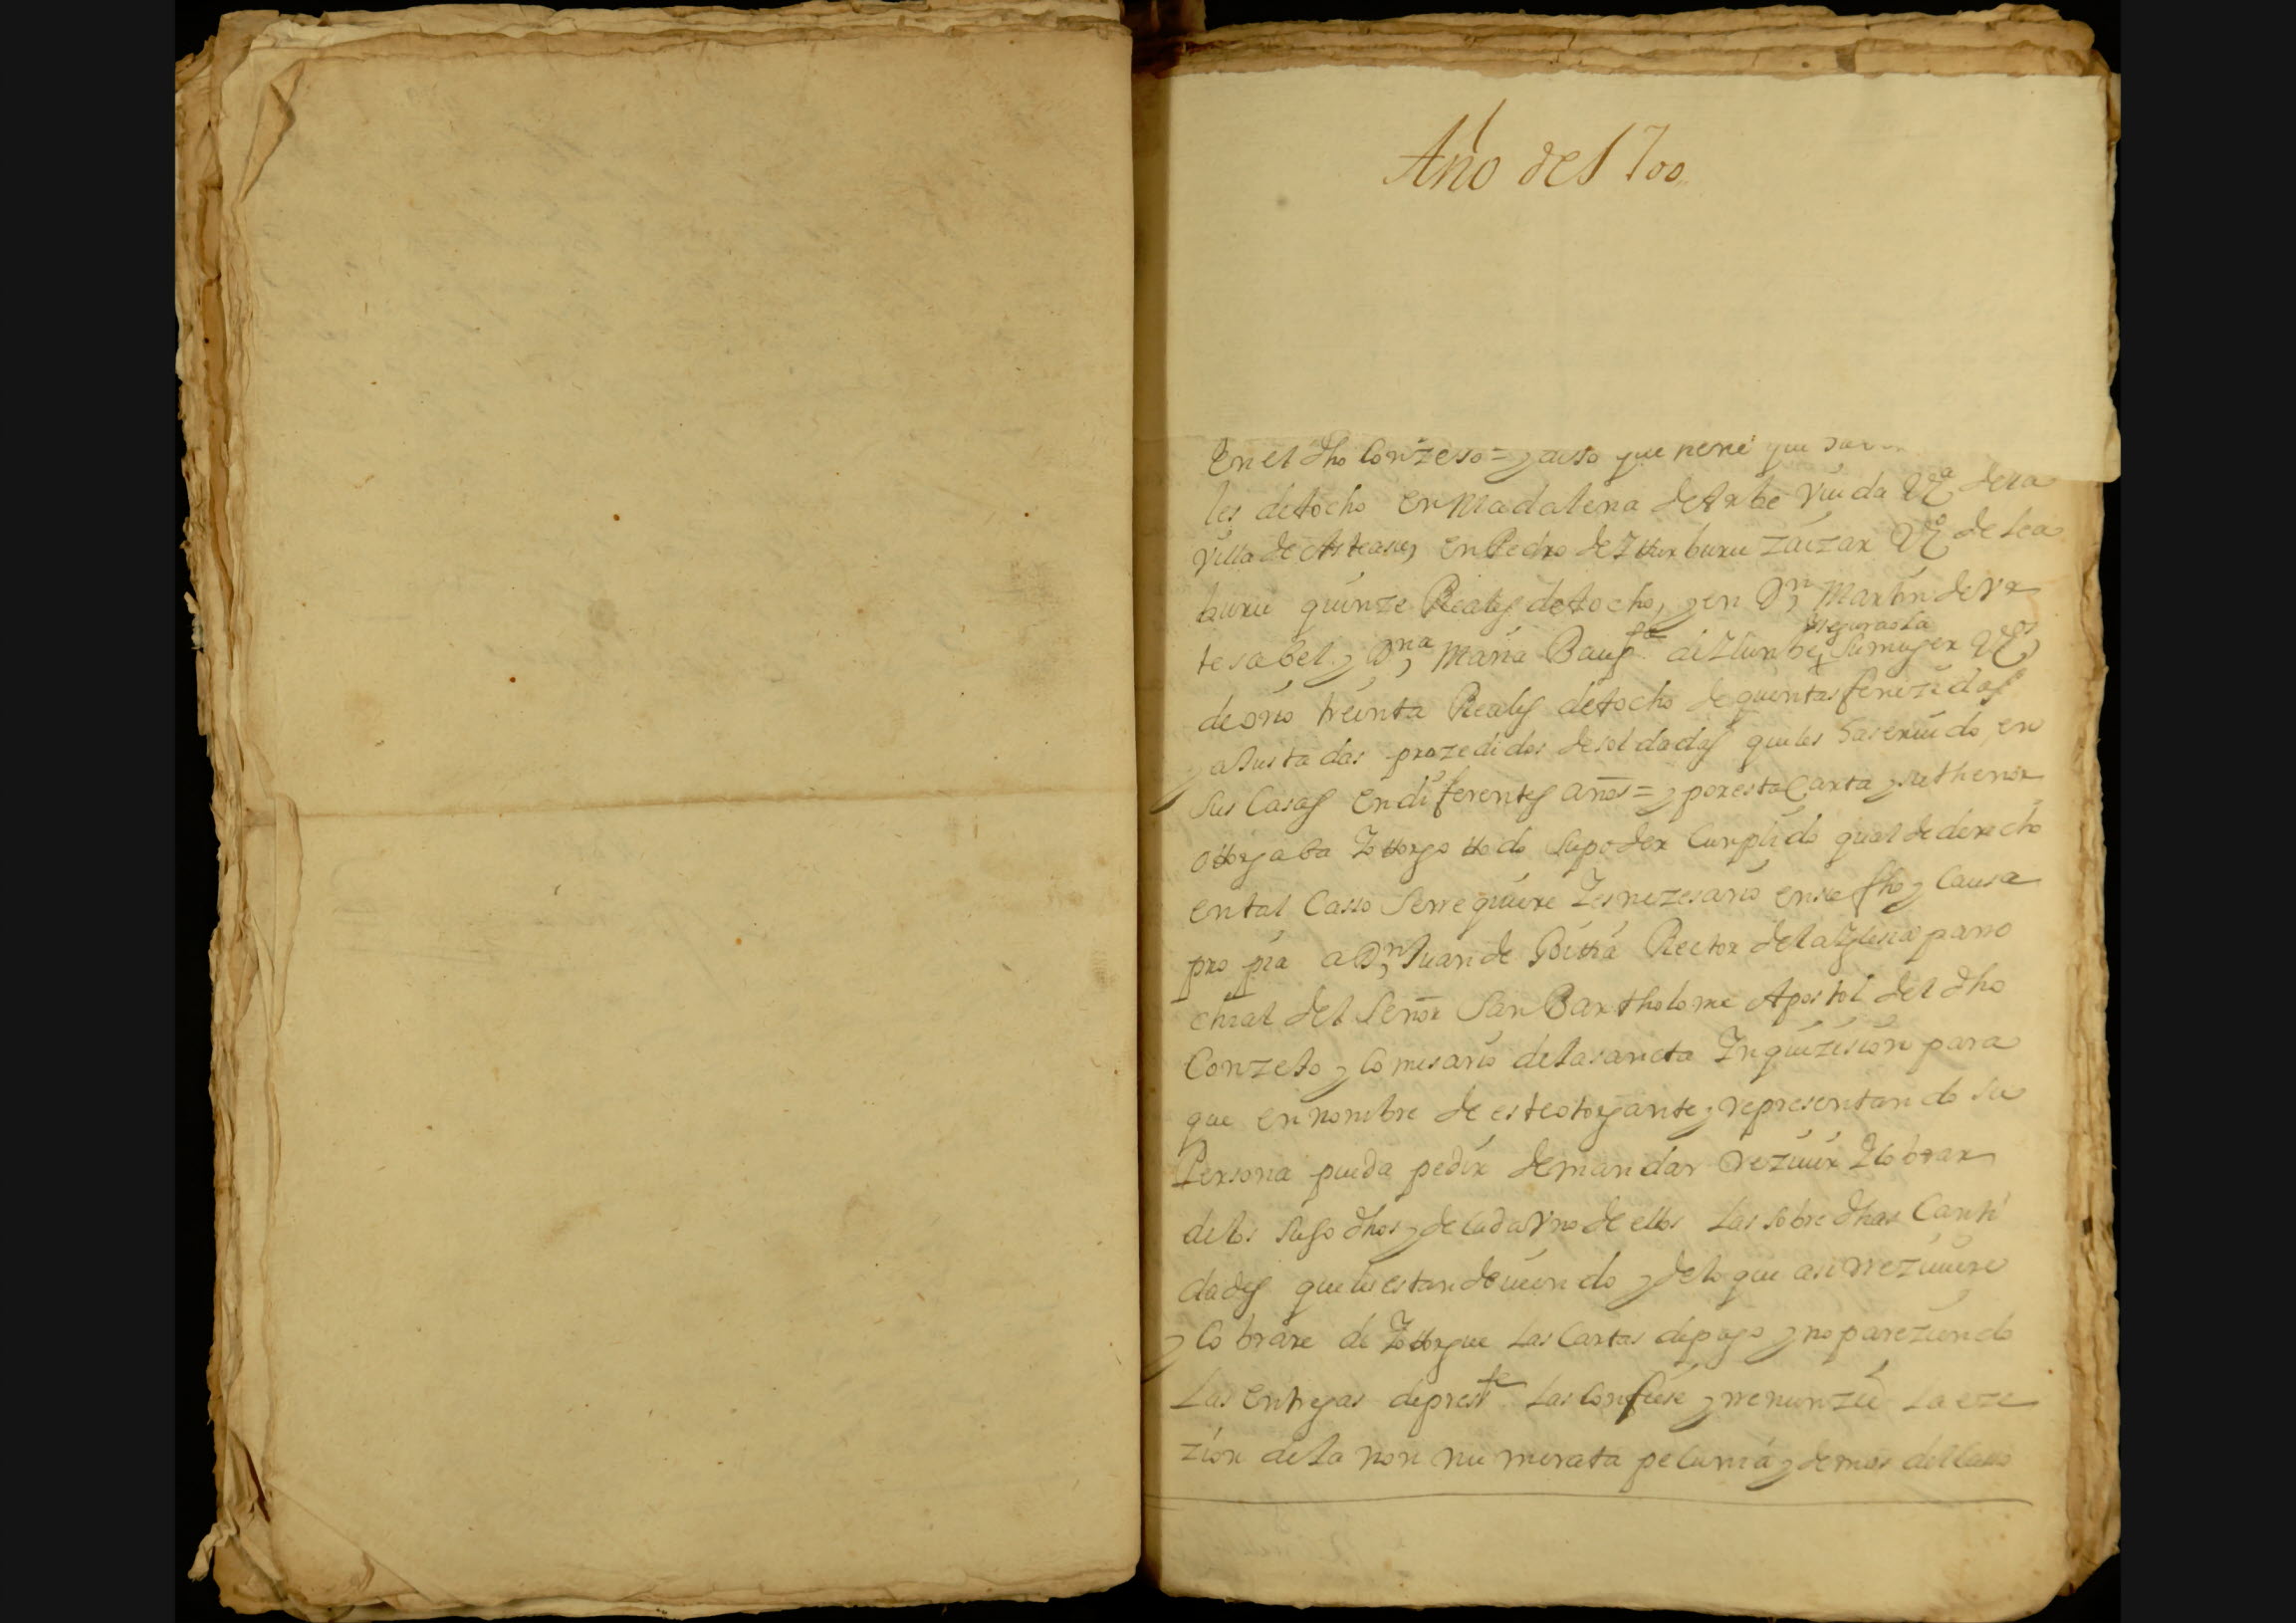 Año de 1700
En el dho Conzejo = y
les de ocho en Madalena de Yrbe viuda Vª de la
Villa de Asteasu, en Pedro de Zuurburu zaizar Vº de Lea
buru quinze Reales de ocho, y en Dn Martin de Vr
tesabel y Dna Maria Baupta de Ylurbe segurasla su muger Vos
de orio treinta Reales de ocho de quentas fenezidas
y ajustadas prozedidos de soldadas que les ha seruido en
sus Casas en diferentes años = y por esta Carta y su thenor
ottorgaba Y ottorgo ttodo su poder Cunplido qual de derecho
en tal Casso se rrequiere Y es nezesario en su fho y Causa
propia a Dn Juan de Rector de la Yglesia parro
chial del Señor San Bartholome Apostol del dho
Conzejo y Comisario de la sancta Ynquizision para
que en nombre de este otorgante y representando su
Persona pueda pedir demandar rezuuir Y Cobrar
de los suso dhos y de Cada Vno de ellos las sobre dhas Canti
dades que le estan deuiendo y de lo que asi rrezuuiere
y Cobrare de Y ottorgue las Cartas de pago y no pareziendo
Las entregas de preste las Confiese y rrenunzie la eze
zion de la non numerata pecunia y demas del Caso